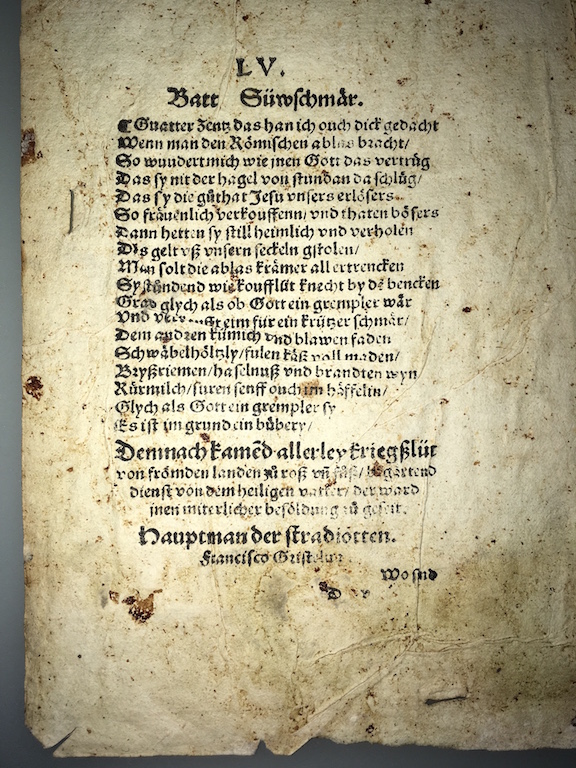 LV.
Batt Süwschmär.
Guatter Zentz das han ich ouch dick gedacht
Wenn man den Römischen ablas bracht/
So wundert mich wie jnen Gott das vertrüg
Das sy nit der hagel von stundan da schlüg/
Das sy die güthat Jesu vnsers erlösers
So fräuenlich verkouffenn/ vnd thaten bösers
Dann hetten sy still heimlich vnd verholen
Dis gelt vß vnsern seckeln gstolen/
Man solt die ablas krämer all ertrencken
Sy stündend wie koufflüt knecht by dē bencken
Grad glych als ob Gott ein grempler wär
Vnd eim für ein krützer schmär/
Dem andren kümich vnd blawen faden
Schwäbelhöltzly/ fulen käß voll maden/
Bryßriemen/ haselnuß vnd brandten wyn
Rürmilch/ suren senff ouch im häffelin/
Glych als Gott ein grempler sy
Es ist im grund ein bübery/
Demnach kamēd allerley kriegßlüt
von frömden landen zü roß vñ füß/ begärtend
dienst von dem heiligen vatter/ der ward
jnen mit erlicher besöldung zü geseit.
Hauptman der stradiotten.
Francisco
Wo sind